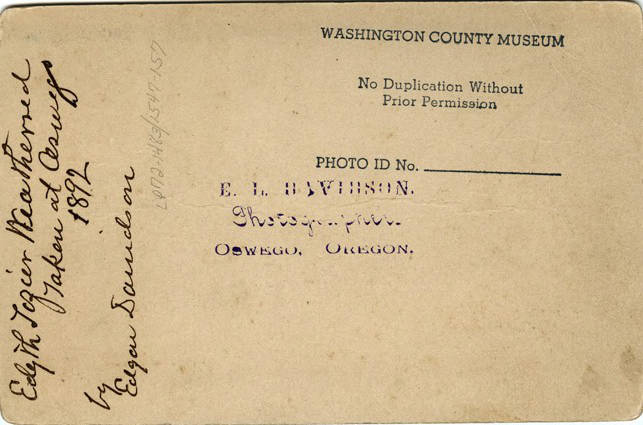 WASHINGTON COUNTY MUSEUM
No Duplication Without
Prior Permission
PHOTO ID No.
E. L. DAVIDSON.
Photographer
OSWEGO, OREGON.
Edyth Tozier Weatherred
Taken at Oswego
1892
by
Edgar Davidson